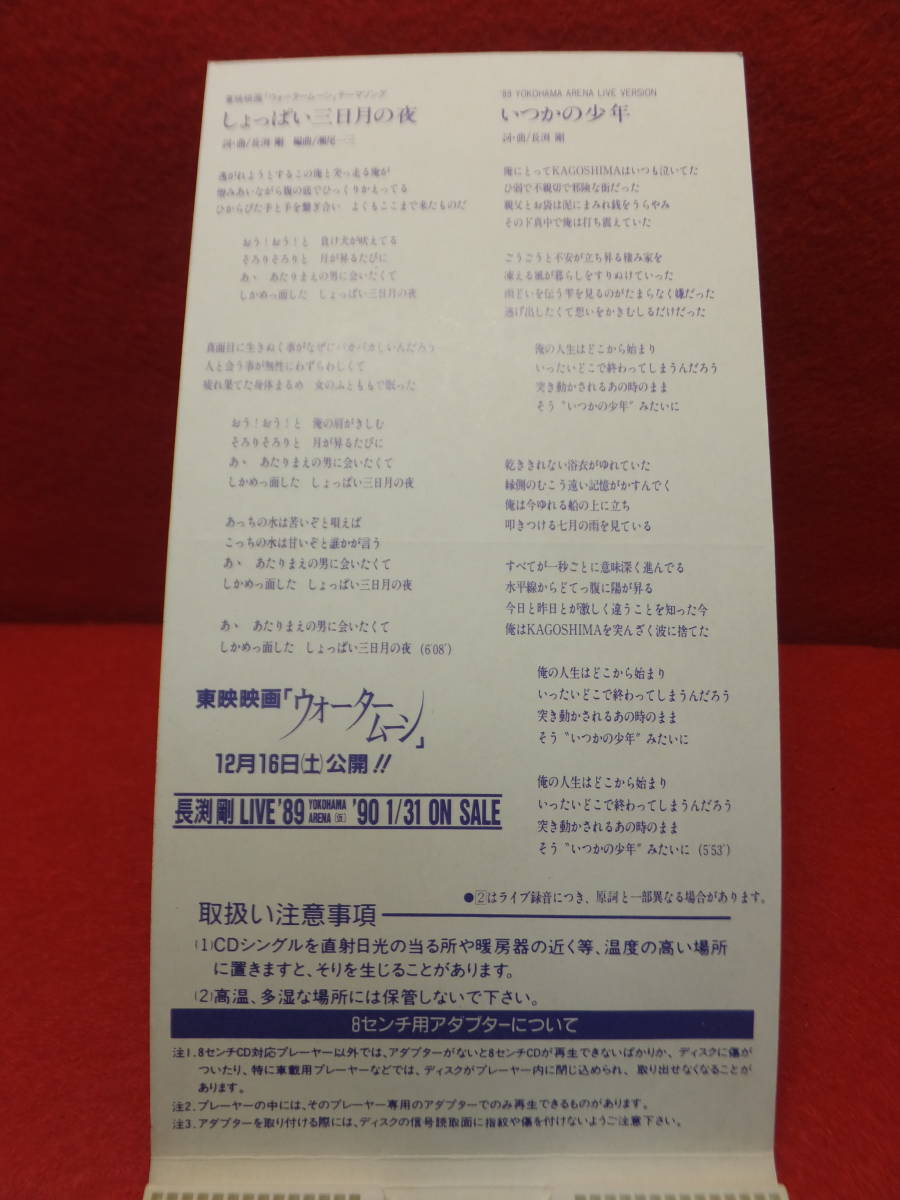 東映映画「ウォータームーン」テーマソング
しょっぱい三日月の夜
詞・曲/長渕 剛 編曲/瀬尾一三
逃がれようとするこの俺と突っ走る俺が
憎みあいながら腹の底でひっくりかえってる
ひからびた手と手を繋ぎ合い よくもここまで来たものだ
おう！おう！と 負け犬が吠えてる
そろりそろりと 月が昇るたびに
あゝ あたりまえの男に会いたくて
しかめっ面した しょっぱい三日月の夜
真面目に生きぬく事がなぜにバカバカしいんだろう
人と会う事が無性にわずらわしくて
疲れ果てた身体まるめ 女のふとももで眠った
おう！おう！と 俺の肩がきしむ
そろりそろりと 月が昇るたびに
あゝ あたりまえの男に会いたくて
しかめっ面した しょっぱい三日月の夜
あっちの水は苦いぞと唄えば
こっちの水は甘いぞと誰かが言う
あゝ あたりまえの男に会いたくて
しかめっ面した しょっぱい三日月の夜
あゝ あたりまえの男に会いたくて
しかめっ面した しょっぱい三日月の夜 (6'08")
東映映画「ウォータームーン」
12月16日(土)公開!!
長渕 剛 LIVE '89 YOKOHAMA ARENA (仮) '90 1/31 ON SALE
'89 YOKOHAMA ARENA LIVE VERSION
いつかの少年
詞・曲/長渕 剛
俺にとってKAGOSHIMAはいつも泣いてた
ひ弱で不親切で邪険な街だった
親父とお袋は泥にまみれ銭をうらやみ
そのド真中で俺は打ち震えていた
ごうごうと不安が立ち昇る棲み家を
凍える風が暮らしをすりぬけていった
雨どいを伝う雫を見るのがたまらなく嫌だった
逃げ出したくて想いをかきむしるだけだった
俺の人生はどこから始まり
いったいどこで終わってしまうんだろう
突き動かされるあの時のまま
そう〝いつかの少年〟みたいに
乾ききれない浴衣がゆれていた
縁側のむこう遠い記憶がかすんでく
俺は今ゆれる船の上に立ち
叩きつける七月の雨を見ている
すべてが一秒ごとに意味深く進んでる
水平線からどてっ腹に陽が昇る
今日と昨日とが激しく違うことを知った今
俺はKAGOSHIMAを突んざく波に捨てた
俺の人生はどこから始まり
いったいどこで終わってしまうんだろう
突き動かされるあの時のまま
そう〝いつかの少年〟みたいに
俺の人生はどこから始まり
いったいどこで終わってしまうんだろう
突き動かされるあの時のまま
そう〝いつかの少年〟みたいに (5'53")
●②はライブ録音につき、原詞と一部異なる場合があります。
取扱い注意事項
(1)CDシングルを直射日光の当る所や暖房器の近く等、温度の高い場所
に置きますと、そりを生じることがあります。
(2)高温、多湿な場所には保管しないで下さい。
8センチ用アダプターについて
注1.8センチCD対応プレーヤー以外では、アダプターがないと8センチCDが再生できないばかりか、ディスクに傷が
ついたり、特に車載用プレーヤーなどでは、ディスクがプレーヤー内に閉じ込められ、取り出せなくなることが
あります。
注2.プレーヤーの中には、そのプレーヤー専用のアダプターでのみ再生できるものがあります。
注3.アダプターを取り付ける際には、ディスクの信号読取面に指紋や傷を付けないようご注意下さい。